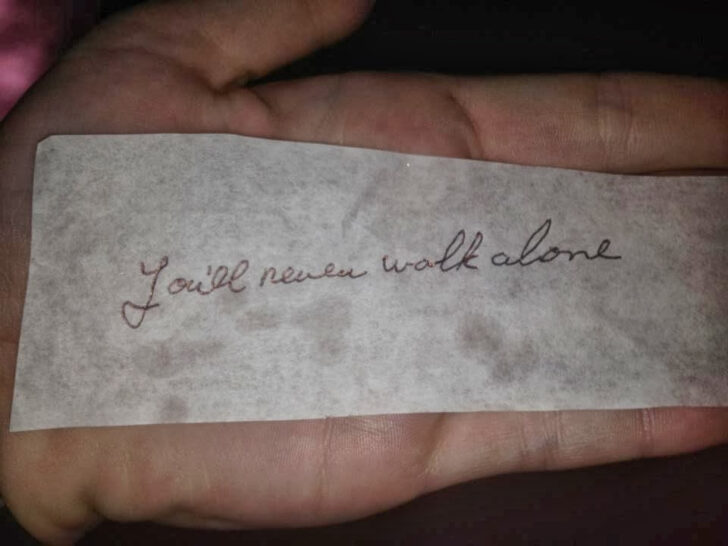 You'll never walk alone